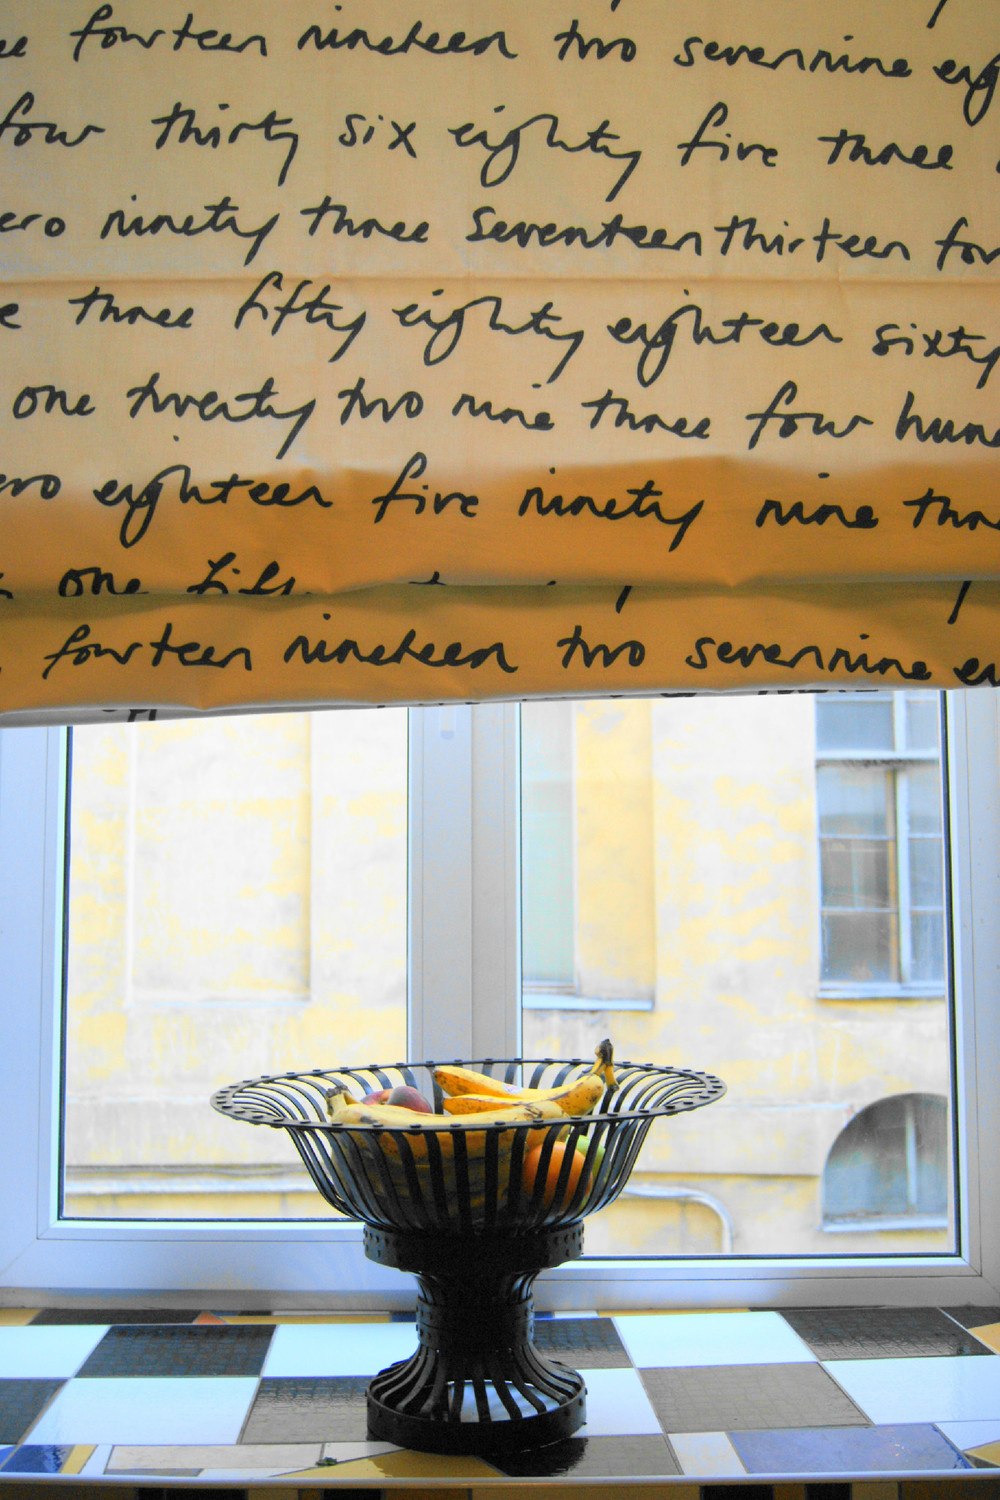 fourteen nineteen two seven nine
four thirty six eighty five three
ninety three seventeen thirteen
three fifty eighty eighteen sixty
one twenty two nine three four
eighteen five ninety nine
one
fourteen nineteen two seven nine